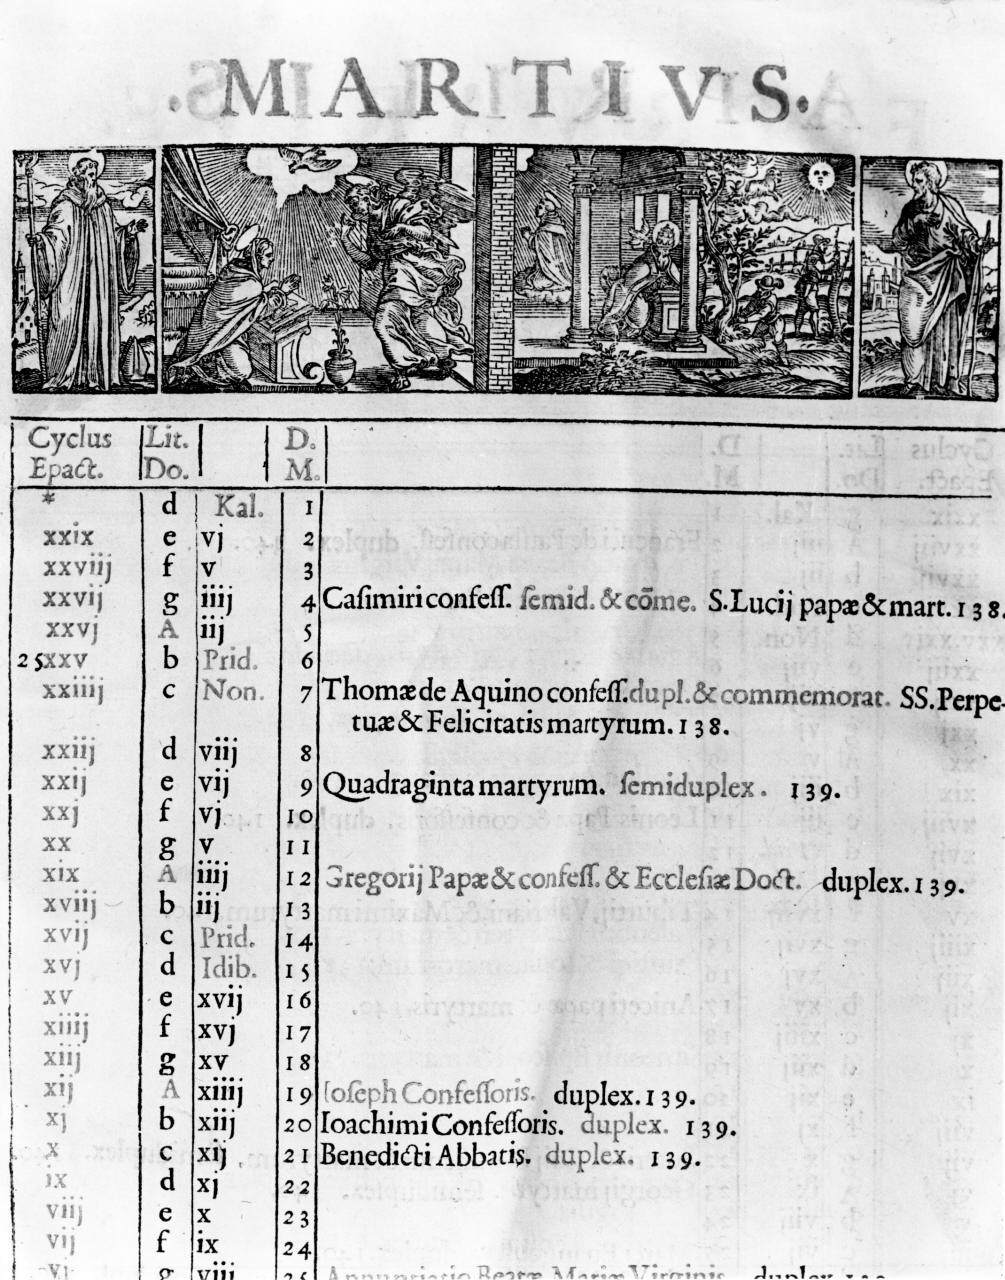 . M A R T I V S .
Cyclus Epact. Lit. Do. D. M.
* d Kal. 1
xxix e vj 2
xxviij f v 3
xxvij g iiij 4 Caſimiri confeſſ. ſemid. & cōme. S. Lucij papæ & mart. 138.
xxvj A iij 5
25 xxv b Prid. 6
xxiiij c Non. 7 Thomæ de Aquino confeſſ. dupl. & commemorat. SS. Perpe-
tuæ & Felicitatis martyrum. 138.
xxiij d viij 8
xxij e vij 9 Quadraginta martyrum. ſemiduplex. 139.
xxj f vj 10
xx g v 11
xix A iiij 12 Gregorij Papæ & confeſſ. & Eccleſiæ Doct. duplex. 139.
xviij b iij 13
xvij c Prid. 14
xvj d Idib. 15
xv e xvij 16
xiiij f xvj 17
xiij g xv 18
xij A xiiij 19 Ioſeph Confeſſoris. duplex. 139.
xj b xiij 20 Ioachimi Confeſſoris. duplex. 139.
x c xij 21 Benedicti Abbatis. duplex. 139.
ix d xj 22
viij e x 23
vij f ix 24
vj g viij 25 Annunciatio Beatæ Mariæ Virginis. duplex